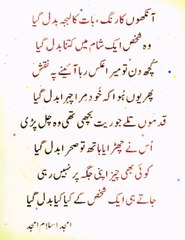 آنکھوں کا رنگ، بات کا لہجہ بدل گیا
وہ شخص ایک شام میں کتنا بدل گیا
کچھ دن تو میرا عکس رہا آئینے پہ نقش
پھر یوں ہوا کہ خود مرا چہرا بدل گیا
قدموں تلے جو ریت بچھی تھی وہ چل پڑی
اُس نے چھڑایا ہاتھ تو صحرا بدل گیا
کوئی بھی چیز اپنی جگہ پر نہیں رہی
جاتے ہی ایک شخص کے کیا کیا بدل گیا
امجد اسلام امجد